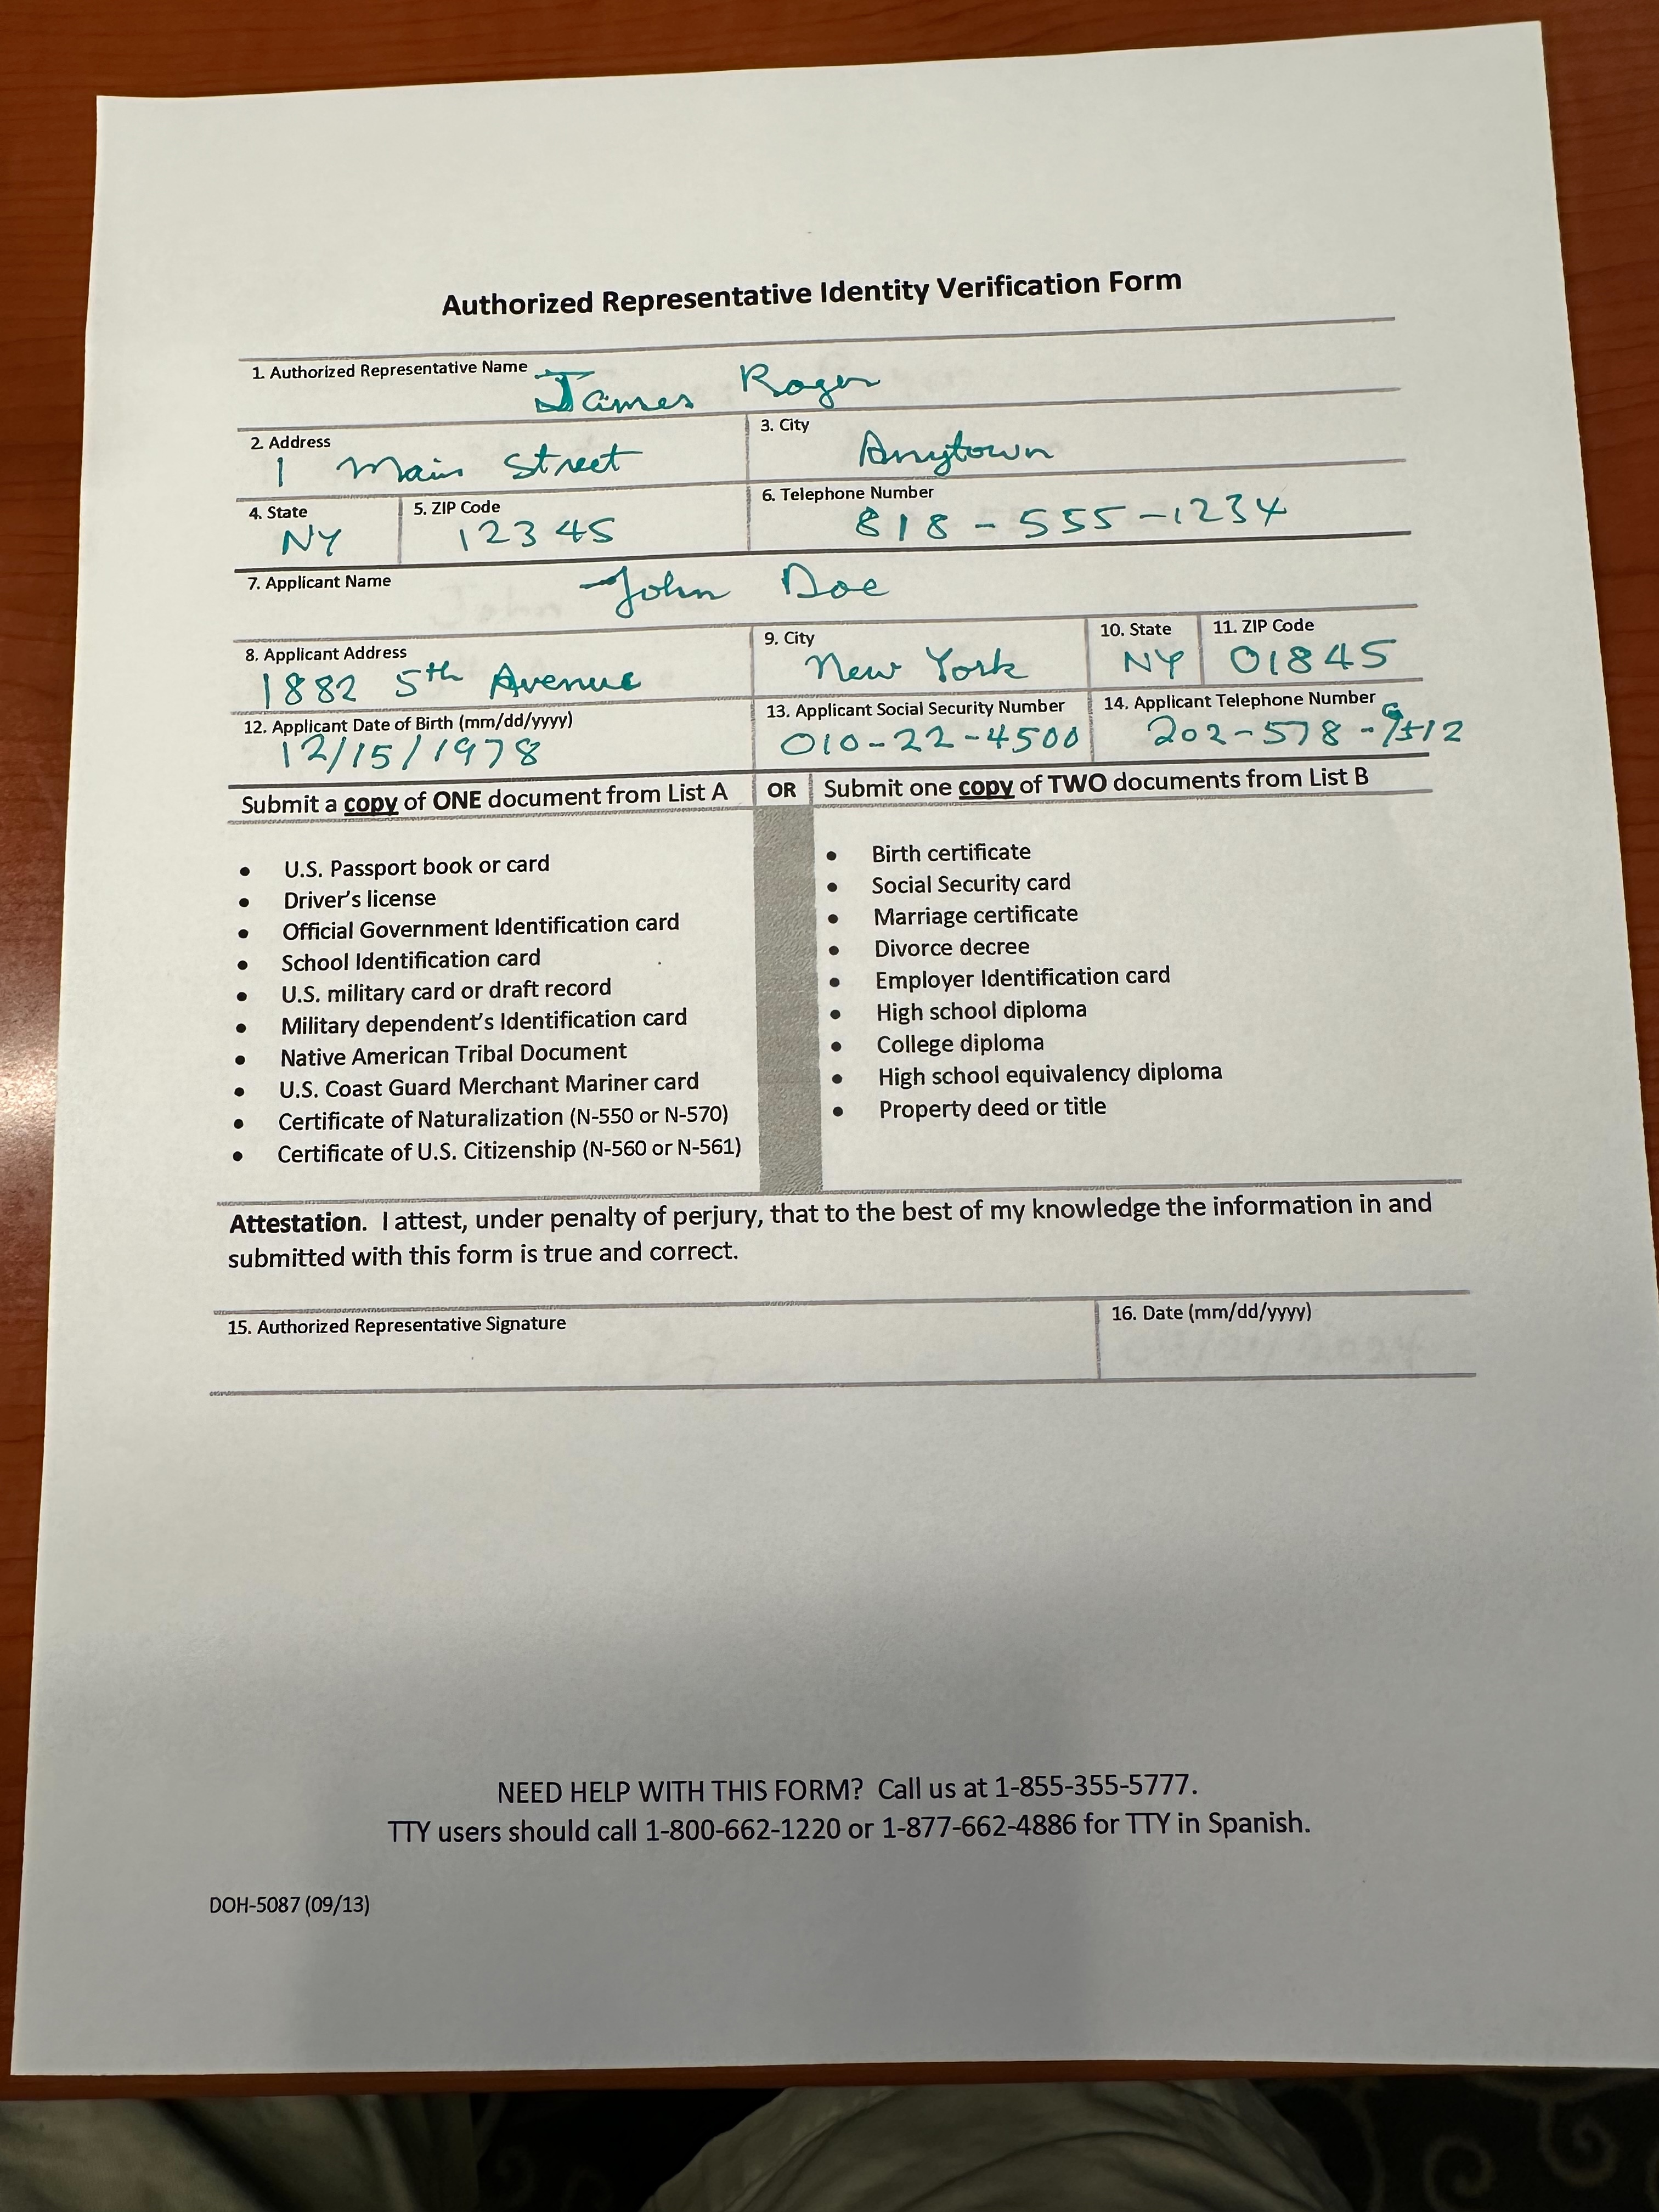 Authorized Representative Identity Verification Form
1. Authorized Representative Name James Roger
2. Address 1 Main Street
3. City Anytown
4. State NY
5. ZIP Code 12345
6. Telephone Number 818-555-1234
7. Applicant Name John Doe
8. Applicant Address 1882 5th Avenue
9. City New York
10. State NY
11. ZIP Code 01845
12. Applicant Date of Birth (mm/dd/yyyy) 12/15/1978
13. Applicant Social Security Number 010-22-4500
14. Applicant Telephone Number 202-578-9512
Submit a copy of ONE document from List A
OR
Submit one copy of TWO documents from List B
• U.S. Passport book or card
• Driver's license
• Official Government Identification card
• School Identification card
• U.S. military card or draft record
• Military dependent's Identification card
• Native American Tribal Document
• U.S. Coast Guard Merchant Mariner card
• Certificate of Naturalization (N-550 or N-570)
• Certificate of U.S. Citizenship (N-560 or N-561)
• Birth certificate
• Social Security card
• Marriage certificate
• Divorce decree
• Employer Identification card
• High school diploma
• College diploma
• High school equivalency diploma
• Property deed or title
Attestation. I attest, under penalty of perjury, that to the best of my knowledge the information in and
submitted with this form is true and correct.
15. Authorized Representative Signature
16. Date (mm/dd/yyyy)
NEED HELP WITH THIS FORM? Call us at 1-855-355-5777.
TTY users should call 1-800-662-1220 or 1-877-662-4886 for TTY in Spanish.
DOH-5087 (09/13)